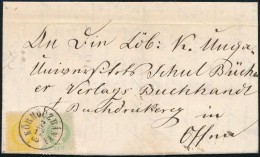 An Die Löb: K. Ung.
Universitäts Schul Bücher
Verlags Buchhandt
Buchdruckerey
in
Ofen
KÖRMÖCZBÁNYA